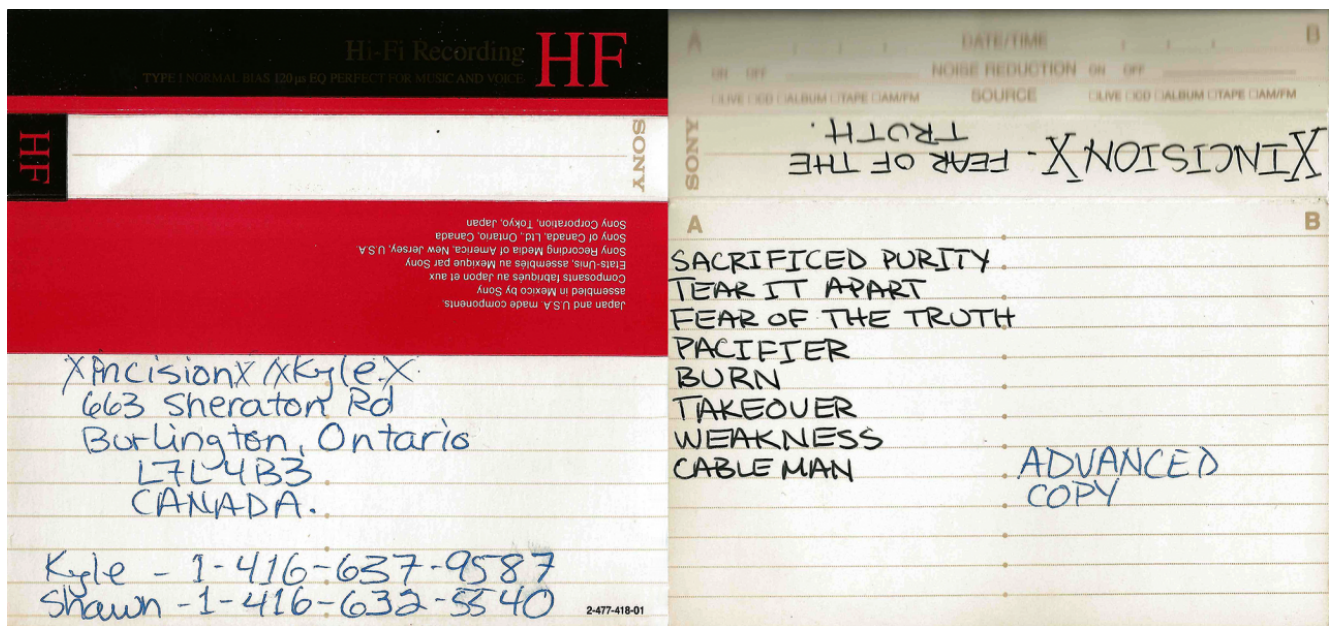 Hi-Fi Recording HF
TYPE I NORMAL BIAS 120 µs EQ PERFECT FOR MUSIC AND VOICE
HF
SONY
Japan and U.S.A. made components,
assembled in Mexico by Sony
Composants fabriqués au Japon et aux
Etats-Unis, assemblés au Mexique par Sony
Sony Recording Media of America, New Jersey, U.S.A
Sony of Canada, Ltd., Ontario, Canada
Sony Corporation, Tokyo, Japan
XIncisionX XKyleX
663 Sheraton Rd
Burlington, Ontario
L7L 4B3
CANADA.
Kyle - 1-416-637-9587
Shawn - 1-416-632-5540
2-477-418-01
A DATE/TIME B
ON OFF NOISE REDUCTION ON OFF
□LIVE □CD □ALBUM □TAPE □AM/FM SOURCE □LIVE □CD □ALBUM □TAPE □AM/FM
SONY
XINCISIONX - FEAR OF THE
TRUTH.
A B
SACRIFICED PURITY
TEAR IT APART
FEAR OF THE TRUTH
PACIFIER
BURN
TAKEOVER
WEAKNESS
CABLE MAN
ADVANCED
COPY